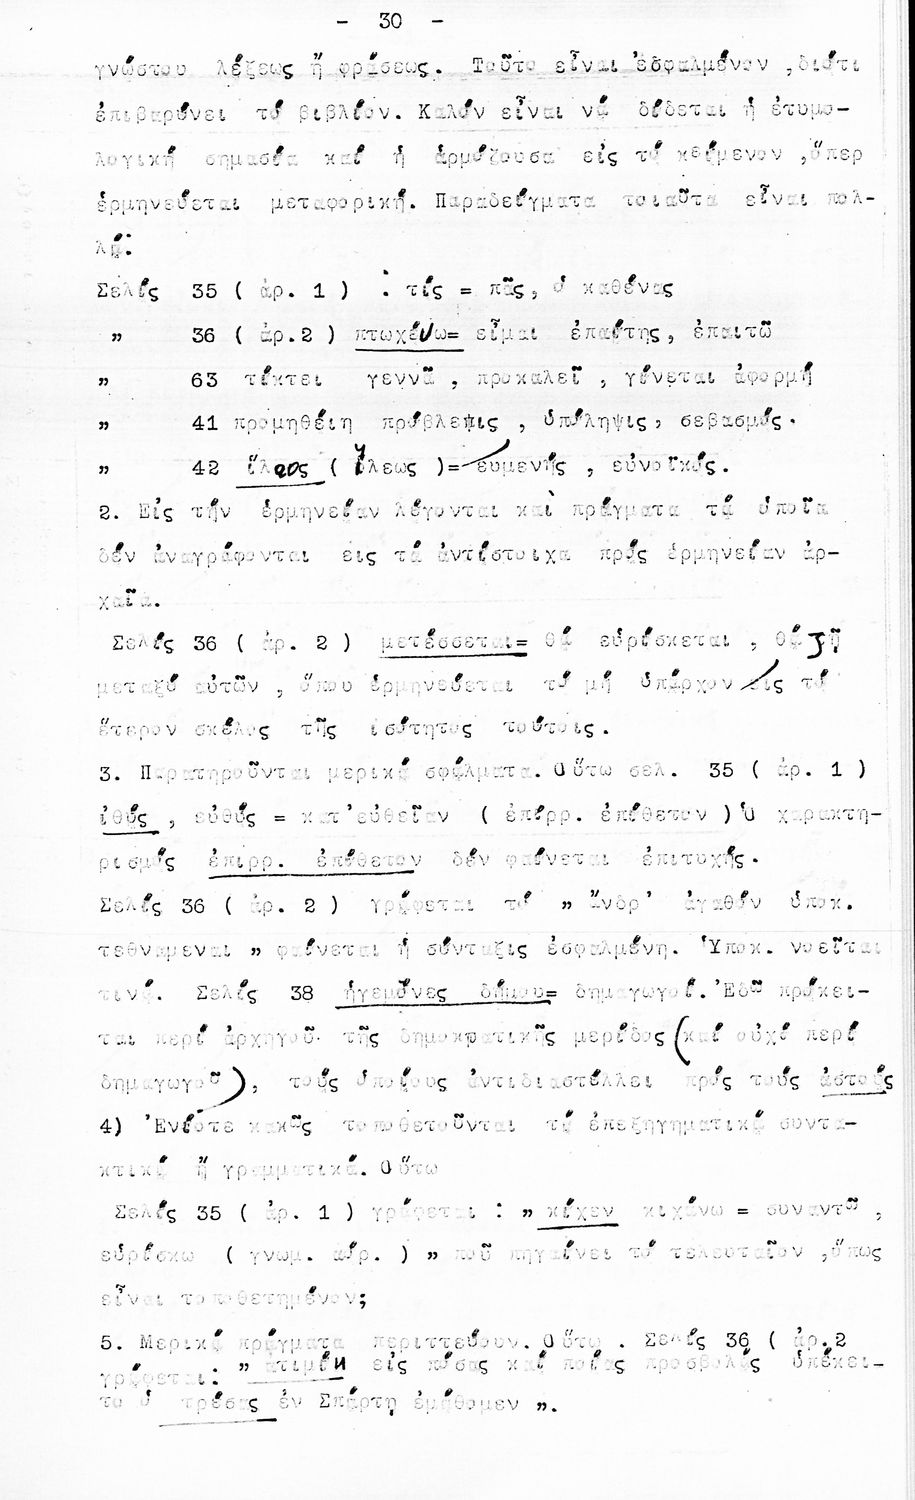 - 30 -
γνώστου λέξεως ἤ φράσεως. Τοῦτο εἶναι ἐσφαλμένον ,διότι
ἐπιβαρύνει τό βιβλίον. Καλόν εἶναι νά δίδεται ἡ ἐτυμο-
λογική σημασία καί ἡ ἁρμόζουσα εἰς τό κείμενον ,ὅπερ
ἑρμηνεύεται μεταφορική. Παραδείγματα τοιαῦτα εἶναι πολ-
λά:
Σελίς 35 ( ἀρ. 1 ) : τίς = πᾶς, ὁ καθένας
" 36 ( ἀρ.2 ) πτωχεύω= εἶμαι ἐπαίτης, ἐπαιτῶ
" 63 τίκτει γεννᾶ , προκαλεῖ , γίνεται ἀφορμή
" 41 προμηθείη πρόβλεψις , ὑπόληψις, σεβασμός.
" 42 ἵλαος ( ἵλεως )= εὐμενής , εὐνοϊκός.
2. Εἰς τήν ἑρμηνείαν λέγονται καὶ πράγματα τά ὁποῖα
δέν ἀναγράφονται εις τά ἀντίστοιχα πρός ἑρμηνείαν ἀρ-
χαῖα.
Σελίς 36 ( ἀρ. 2 ) μετέσσεται= θά εὑρίσκεται , θά ζῆ
μεταξύ αὐτῶν , ὅπου ἑρμηνεύεται τό μή ὑπάρχον εἰς τό
ἕτερον σκέλος τῆς ἰσότητος τούτοις.
3. Παρατηροῦνται μερικά σφάλματα. Οὕτω σελ. 35 ( ἀρ. 1 )
ἰθύς , εὐθύς = κατ'εὐθεῖαν ( ἐπίρρ. ἐπίθετον ) Ὁ χαρακτη-
ρισμός ἐπιρρ. ἐπίθετον δέν φαίνεται ἐπιτυχής.
Σελίς 36 ( ἀρ. 2 ) γράφεται τό " ἄνδρ' ἀγαθόν ὑποκ.
τεθνάμεναι " φαίνεται ἡ σύνταξις ἐσφαλμένη. Ὑποκ. νοεῖται
τινά. Σελίς 38 ἡγεμόνες δήμου= δημαγωγοί. Ἐδῶ πρόκει-
ται περί ἀρχηγοῦ τῆς δημοκρατικῆς μερίδος (καί οὐχί περί
δημαγωγοῦ), τούς ὁποίους ἀντιδιαστέλλει πρός τούς ἀστούς
4) Ἐνίοτε κακῶς τοποθετοῦνται τά ἐπεξηγηματικά συντα-
κτικά ἤ γραμματικά. Οὕτω
Σελίς 35 ( ἀρ. 1 ) γράφεται : " κίχεν κιχάνω = συναντῶ ,
εὑρίσκω ( γνωμ. ἀόρ. ) " ποῦ πηγαίνει τό τελευταῖον ,ὅπως
εἶναι τοποθετημένον;
5. Μερικά πράγματα περιττεύουν. Οὕτω . Σελίς 36 ( ἀρ.2
γράφεται: " ἀτιμίη εἰς πόσας καί ποίας προσβολάς ὑπέκει-
το ὁ τρέσας ἐν Σπάρτῃ ἐμάθομεν ".